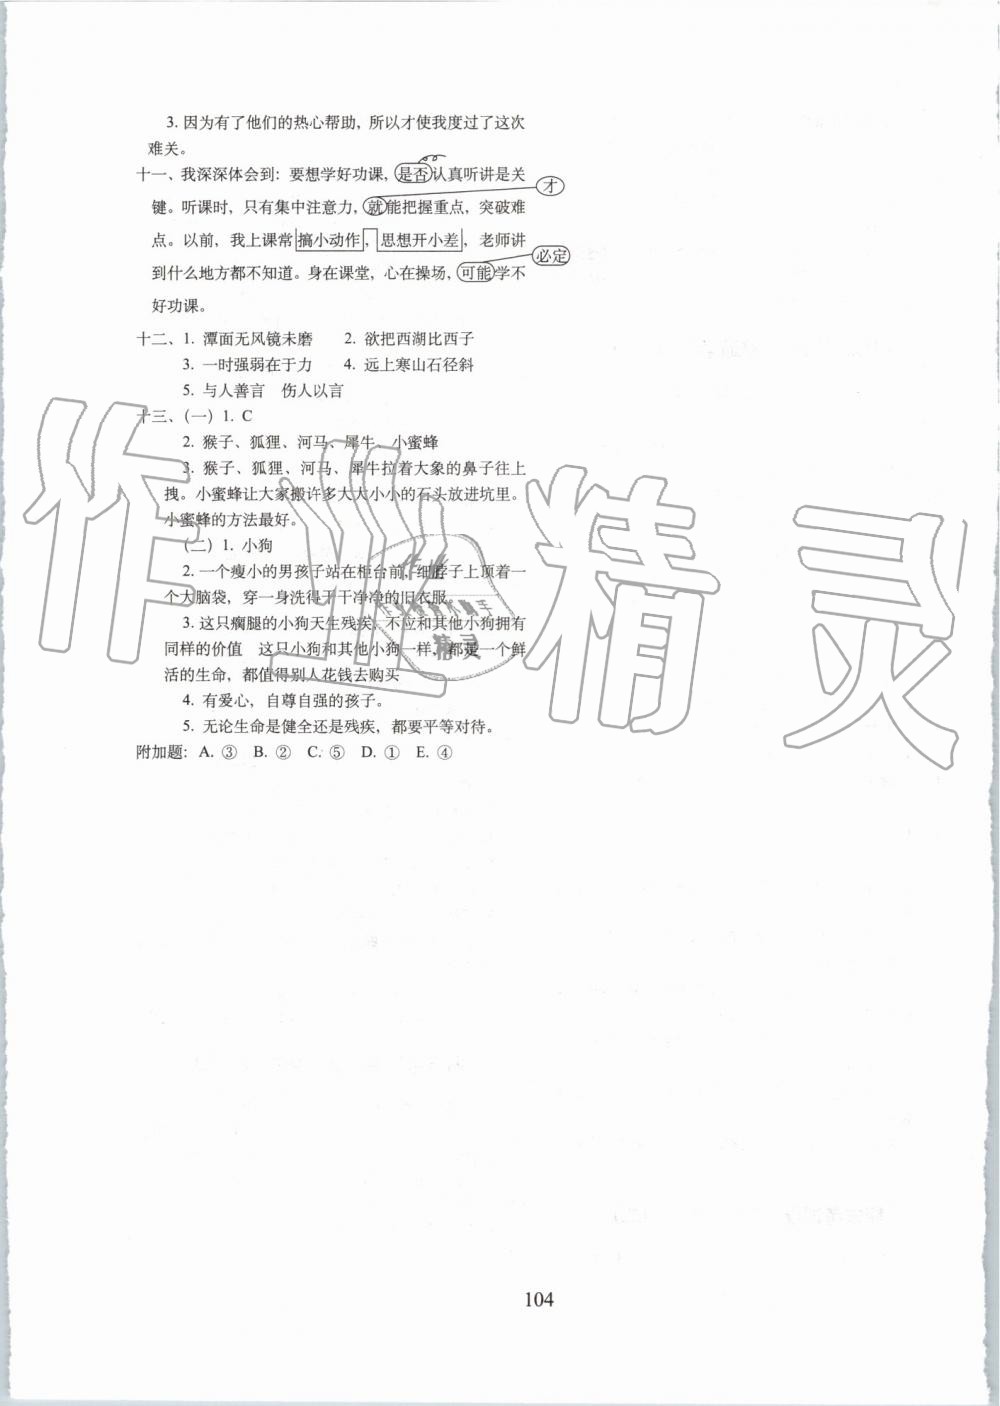 3. 因为有了他们的热心帮助，所以才使我度过了这次
难关。
十一、我深深体会到：要想学好功课，是否认真听讲是关
才
键。听课时，只有集中注意力，就能把握重点，突破难
点。以前，我上课常搞小动作，思想开小差，老师讲
必定
到什么地方都不知道。身在课堂，心在操场，可能学不
好功课。
十二、1. 潭面无风镜未磨 2. 欲把西湖比西子
3. 一时强弱在于力 4. 远上寒山石径斜
5. 与人善言 伤人以言
十三、（一）1. C
2. 猴子、狐狸、河马、犀牛、小蜜蜂
3. 猴子、狐狸、河马、犀牛拉着大象的鼻子往上
拽。小蜜蜂让大家搬许多大大小小的石头放进坑里。
小蜜蜂的方法最好。
（二）1. 小狗
2. 一个瘦小的男孩子站在柜台前，细脖子上顶着一
个大脑袋，穿一身洗得干干净净的旧衣服。
3. 这只瘸腿的小狗天生残疾，不应和其他小狗拥有
同样的价值 这只小狗和其他小狗一样，都是一个鲜
活的生命，都值得别人花钱去购买
4. 有爱心，自尊自强的孩子。
5. 无论生命是健全还是残疾，都要平等对待。
附加题：A. ③ B. ② C. ⑤ D. ① E. ④
作业精灵
作业
精灵
104